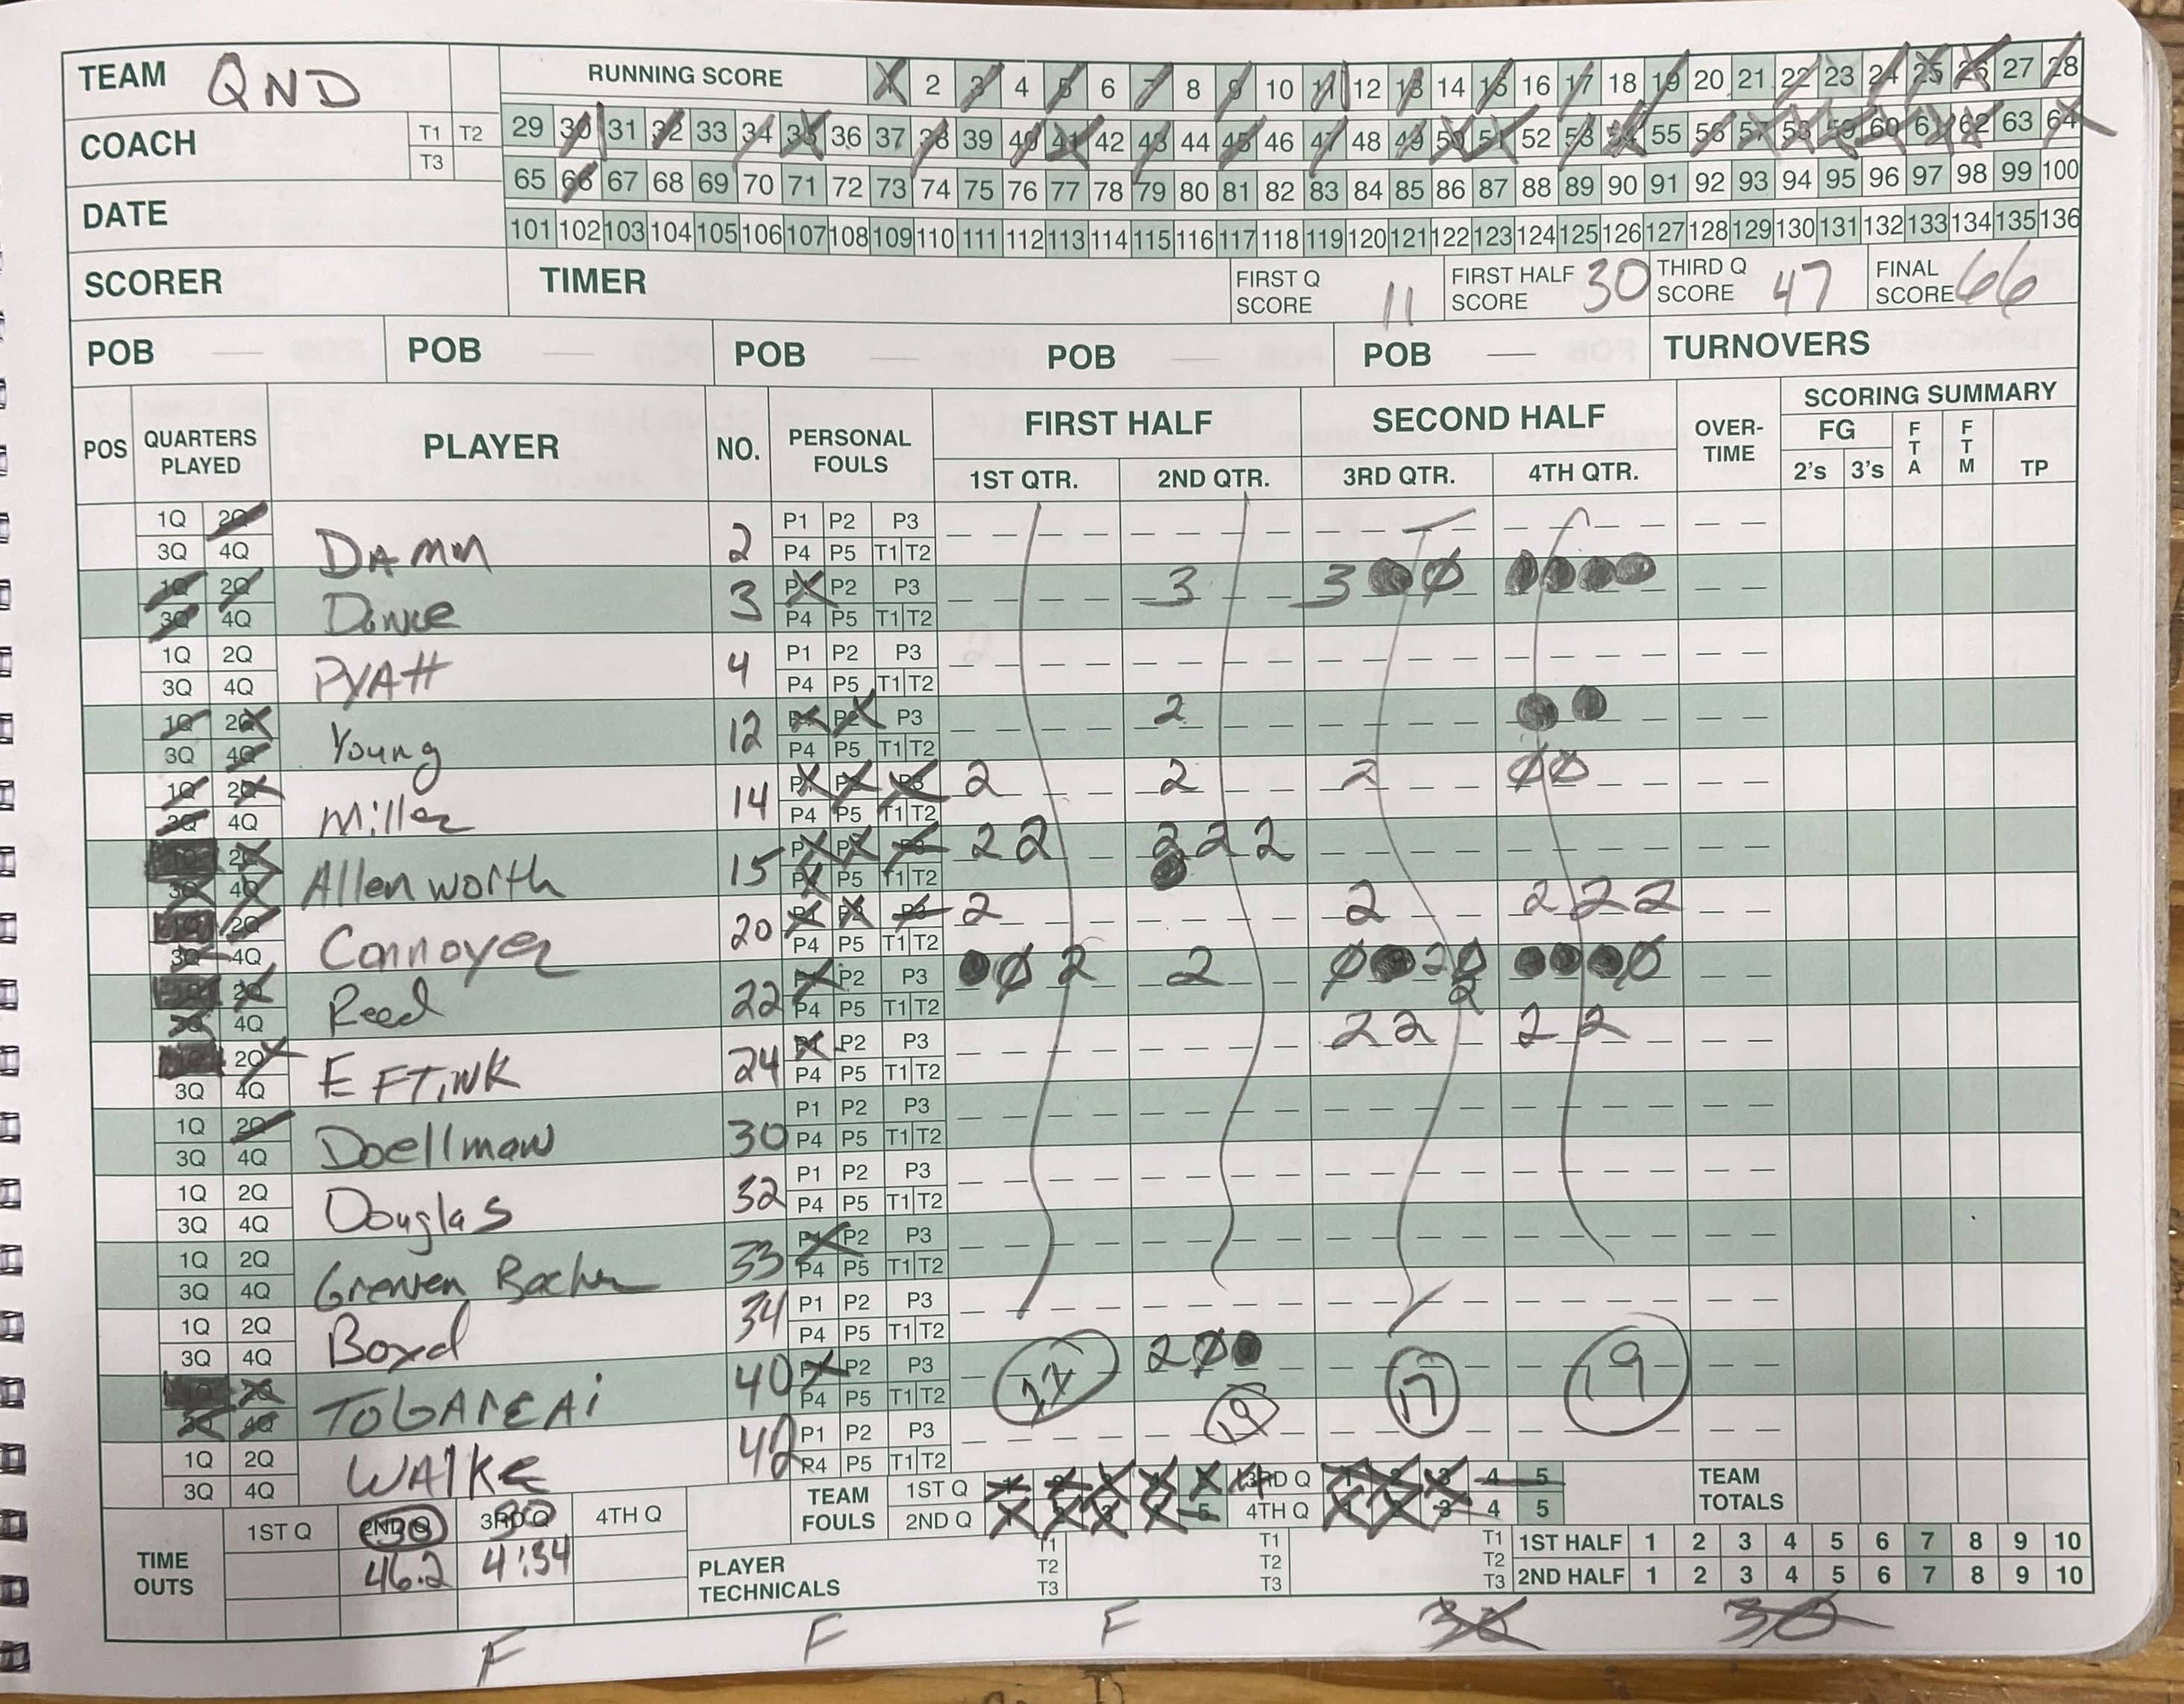 TEAM QND RUNNING SCORE 1 2 3 4 5 6 7 8 9 10 11 12 13 14 15 16 17 18 19 20 21 22 23 24 25 26 27 28
COACH T1 T2 29 30 31 32 33 34 35 36 37 38 39 40 41 42 43 44 45 46 47 48 49 50 51 52 53 54 55 56 57 58 59 60 61 62 63 64
T3 65 66 67 68 69 70 71 72 73 74 75 76 77 78 79 80 81 82 83 84 85 86 87 88 89 90 91 92 93 94 95 96 97 98 99 100
DATE 101 102 103 104 105 106 107 108 109 110 111 112 113 114 115 116 117 118 119 120 121 122 123 124 125 126 127 128 129 130 131 132 133 134 135 136
SCORER TIMER FIRST Q SCORE 11 FIRST HALF SCORE 30 THIRD Q SCORE 47 FINAL SCORE 66
POB POB POB POB POB TURNOVERS
POS QUARTERS PLAYED PLAYER NO. PERSONAL FOULS FIRST HALF SECOND HALF OVER-TIME SCORING SUMMARY
1ST QTR. 2ND QTR. 3RD QTR. 4TH QTR. FG 2's 3's FTA FTM TP
1Q 2Q DAMM 2 P1 P2 P3
3Q 4Q P4 P5 T1 T2
1Q 2Q 3 P1 P2 P3 3 3
3Q 4Q P4 P5 T1 T2
1Q 2Q PYAtt 4 P1 P2 P3
3Q 4Q P4 P5 T1 T2
1Q 2Q Young 12 P1 P2 P3 2
3Q 4Q P4 P5 T1 T2
1Q 2Q Miller 14 P1 P2 P3 2 2 2
3Q 4Q P4 P5 T1 T2
1Q 2Q Allenworth 15 P1 P2 P3 2 2 2 2 2
3Q 4Q P4 P5 T1 T2
1Q 2Q Connoyer 20 P1 P2 P3 2 2 2 2 2
3Q 4Q P4 P5 T1 T2
1Q 2Q Reed 22 P1 P2 P3 2 2 2 2
3Q 4Q P4 P5 T1 T2
1Q 2Q EFTiNK 24 P1 P2 P3 2 2 2 2
3Q 4Q P4 P5 T1 T2
1Q 2Q Doellman 30 P1 P2 P3
3Q 4Q P4 P5 T1 T2
1Q 2Q Douglas 32 P1 P2 P3
3Q 4Q P4 P5 T1 T2
1Q 2Q 33 P1 P2 P3
3Q 4Q P4 P5 T1 T2
1Q 2Q Boyd 34 P1 P2 P3
3Q 4Q P4 P5 T1 T2
1Q 2Q 40 P1 P2 P3 2 17 19
3Q 4Q P4 P5 T1 T2 19
1Q 2Q WAlKE 42 P1 P2 P3
3Q 4Q P4 P5 T1 T2
TEAM FOULS 1ST Q 1 2 3 4 5 3RD Q 1 2 3 4 5 TEAM TOTALS
2ND Q 1 2 3 4 5 4TH Q 1 2 3 4 5
TIME OUTS 1ST Q 2ND Q 3RD Q 30 4TH Q
46.2 4:34
PLAYER TECHNICALS T1 T2 T3 T1 T2 T3 T1 T2 T3
1ST HALF 1 2 3 4 5 6 7 8 9 10
2ND HALF 1 2 3 4 5 6 7 8 9 10
F F F 30 30